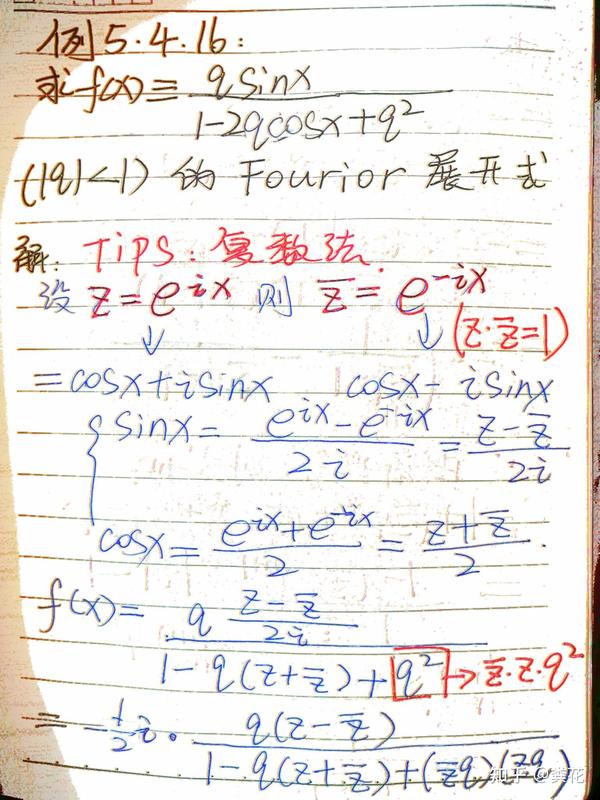 例5.4.16:
求f(x)= q sinx / 1-2qcosx+q²
(|q|<1) 的 Fourior 展开式
解: TIPS: 复数法.
设 z=e^{ix} 则 z̅=e^{-ix}
↓ ↓ (z·z̅=1)
=cosx+isinx cosx-isinx
{ sinx= e^{ix}-e^{-ix} / 2i = z-z̅ / 2i
cosx= e^{ix}+e^{-ix} / 2 = z+z̅ / 2 .
f(x)= q (z-z̅ / 2i) / 1-q(z+z̅)+q² → z̅·z·q²
= -½i · q(z-z̅) / 1-q(z+z̅)+(z̅q)(zq)
知乎 @龚花